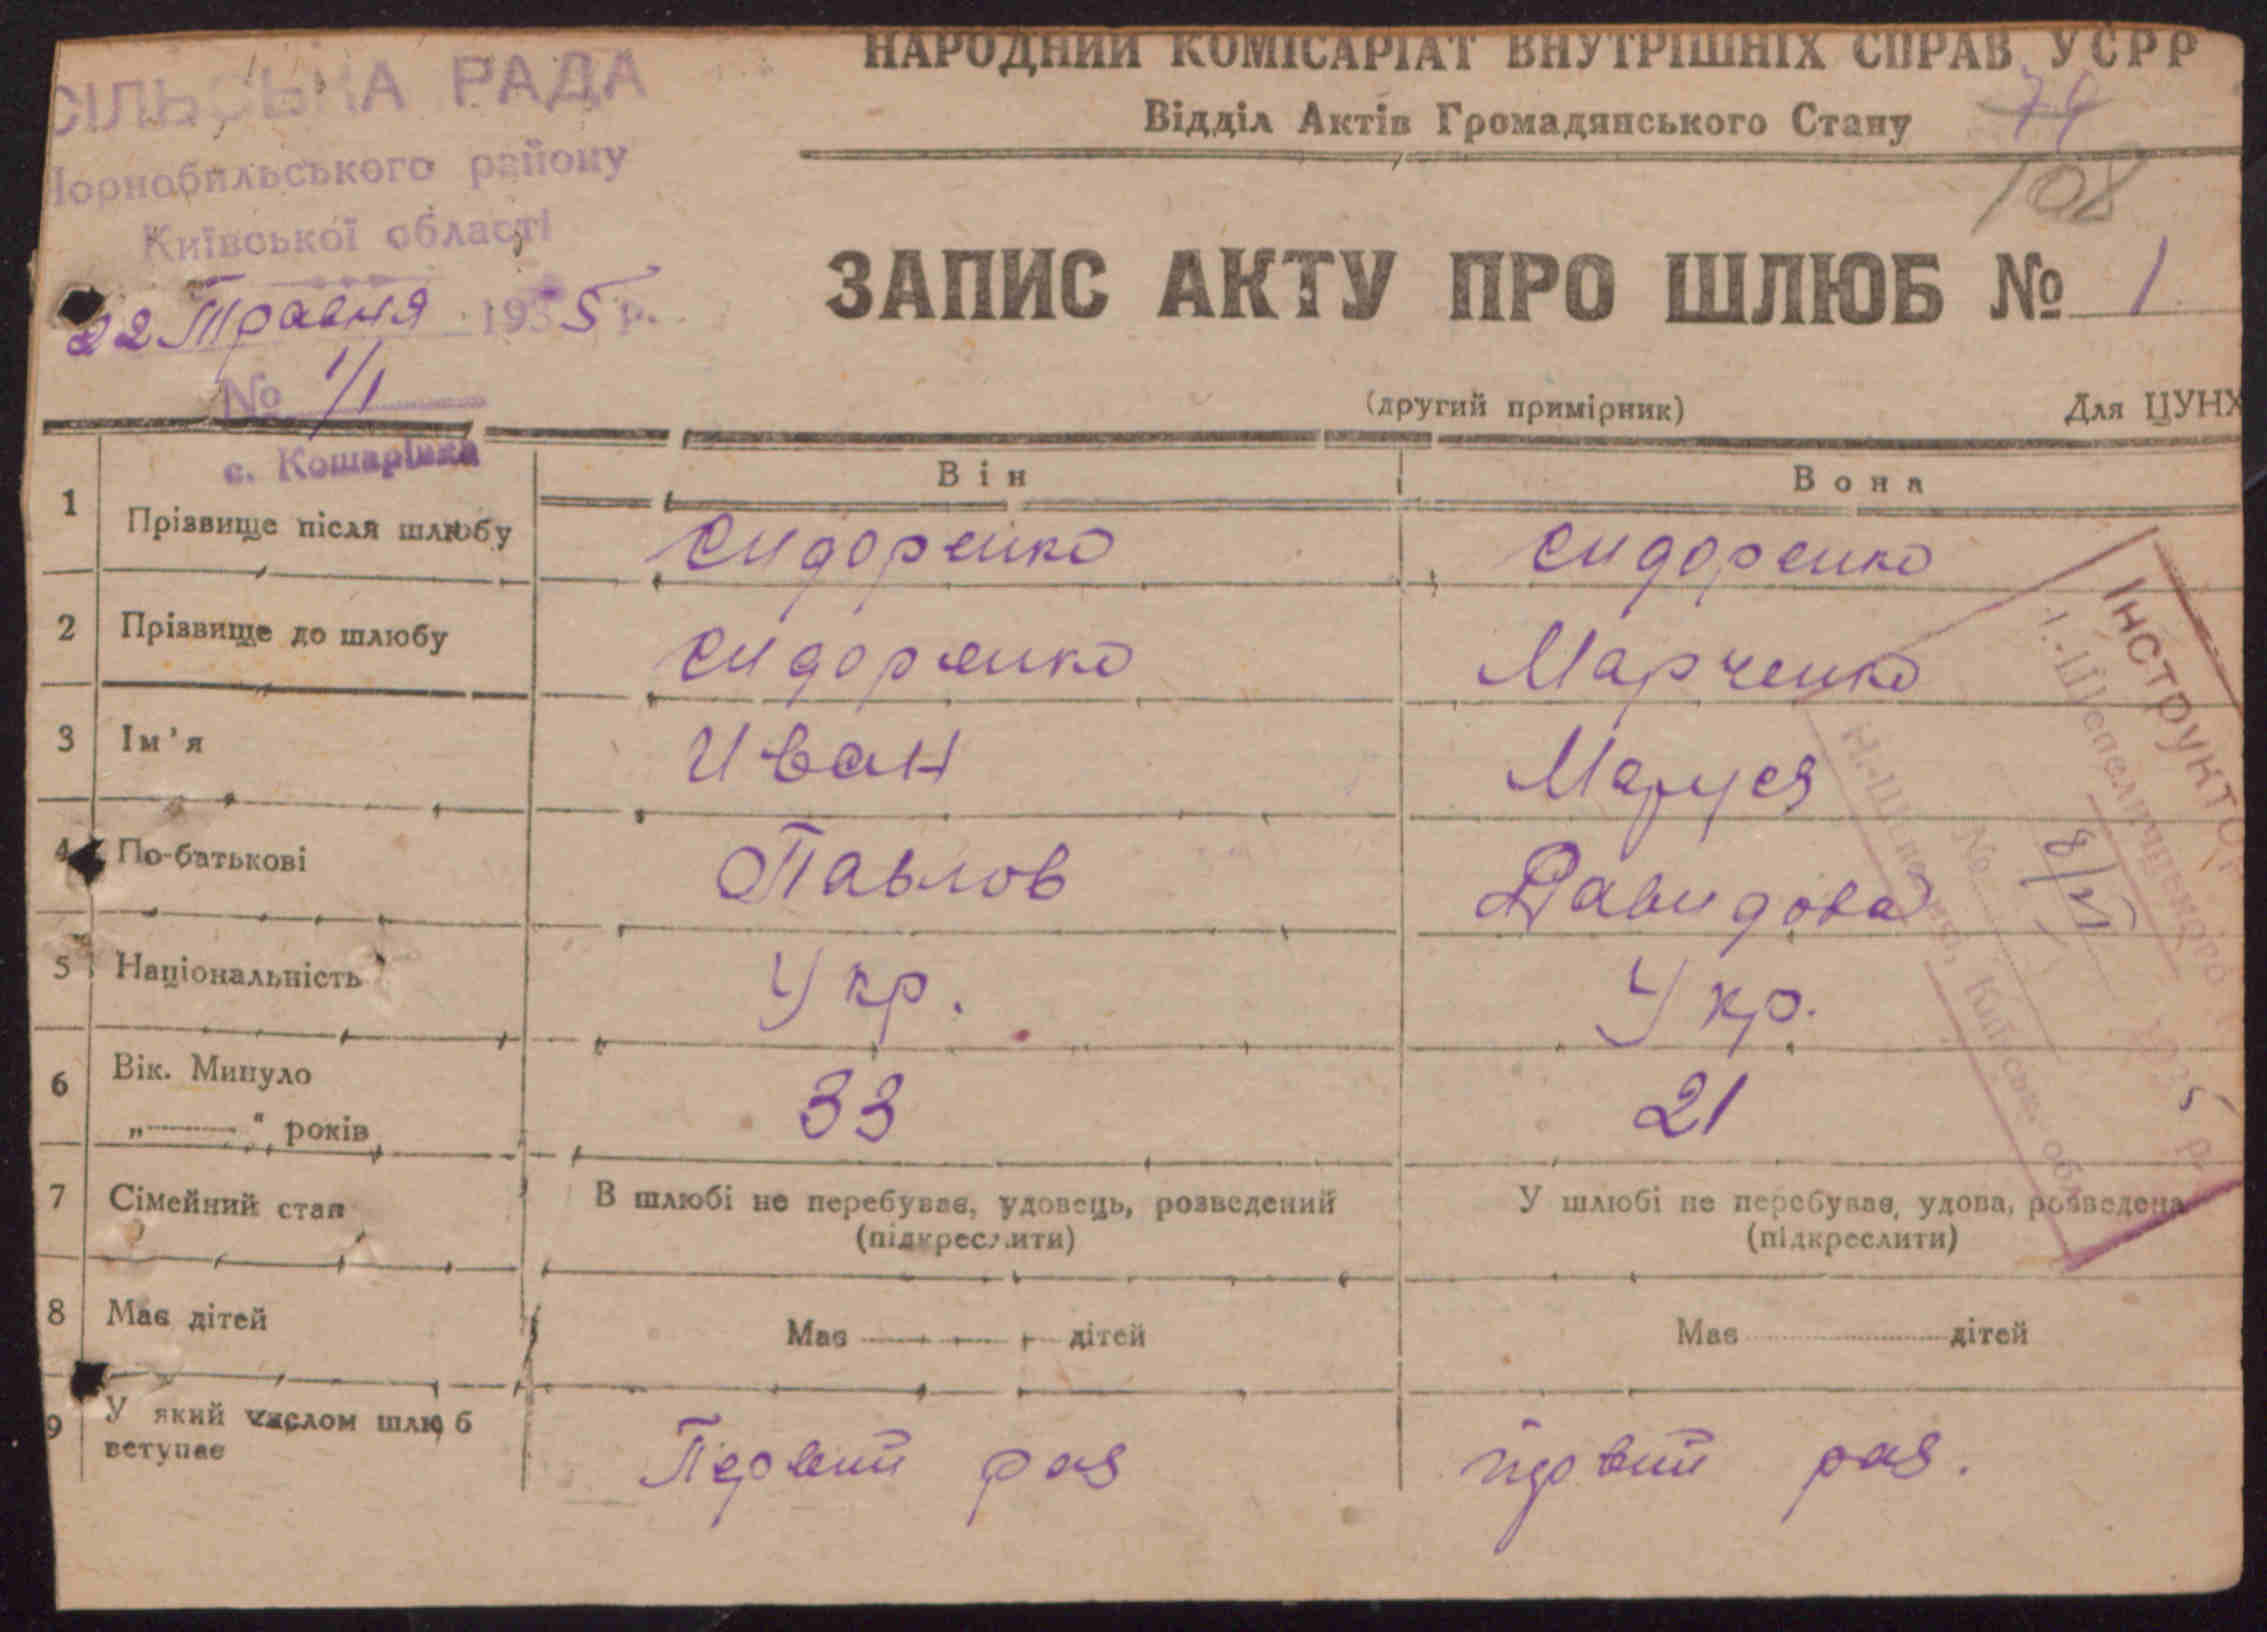 СІЛЬСЬКА РАДА
Чорнобильського району
Київської області
22 Травня 1935 р.
№ 1/1
с. Кошарівка
НАРОДНИЙ КОМІСАРІАТ ВНУТРІШНІХ СПРАВ УСРР
Відділ Актів Громадянського Стану
74
108
ЗАПИС АКТУ ПРО ШЛЮБ № 1
(другий примірник) Для ЦУНХ
Він Вона
1 Прізвище після шлюбу Сидоренко Сидоренко
2 Прізвище до шлюбу Сидоренко Марченко
3 Ім'я Иван Маруся
4 По-батькові Павлов Давидова
5 Національність Укр. Укр.
6 Вік. Минуло
„ “ років 33 21
7 Сімейний стан В шлюбі не перебуває, удовець, розведений У шлюбі не перебуває, удова, розведена
(підкреслити) (підкреслити)
8 Має дітей Має дітей Має дітей
9 У який числом шлюб
вступає Первий раз первий раз.
Інструктор
№ 8/VI
1935 р.